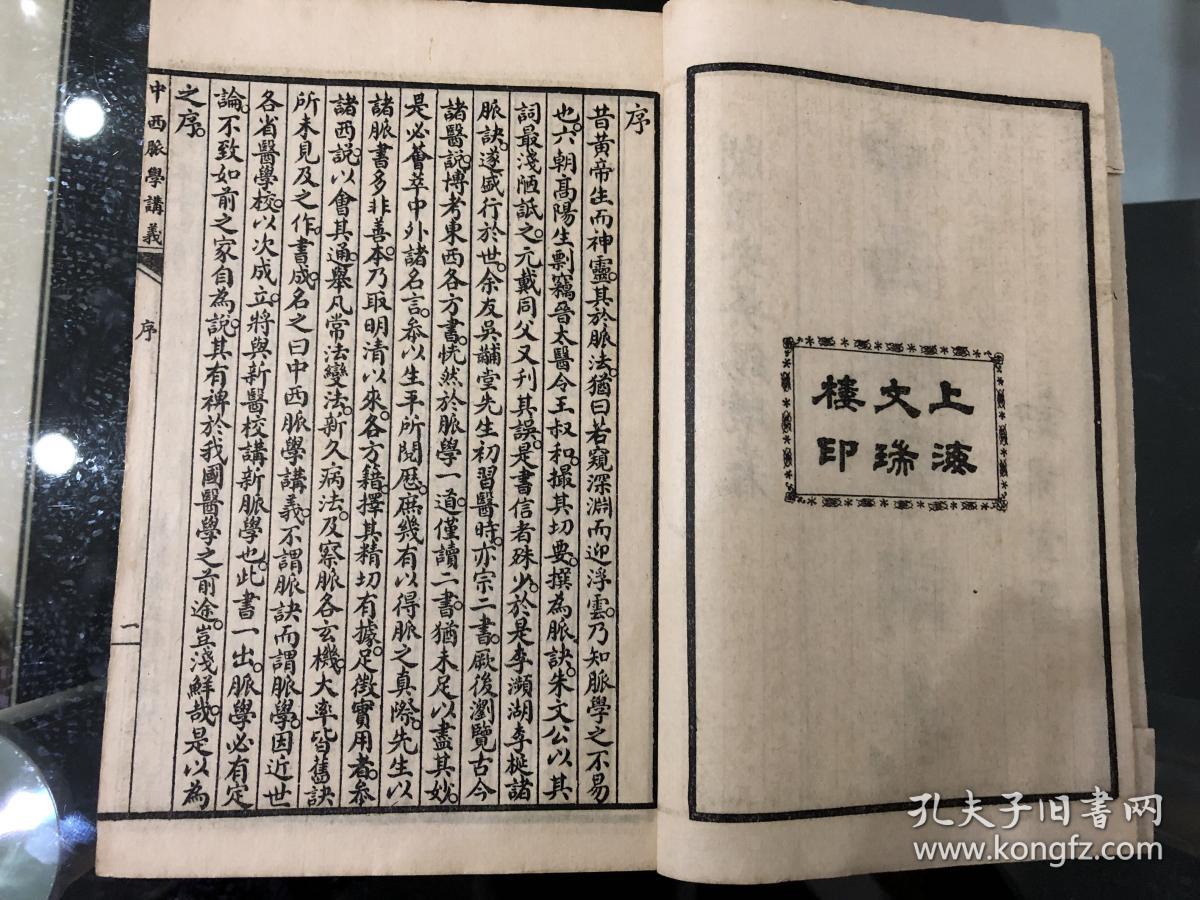 上海
文瑞
樓印
序
昔黃帝生而神靈。其於脈法。猶曰若窺深淵而迎浮雲。乃知脈學之不易
也。六朝高陽生剽竊晉太醫令王叔和。撮其切要。撰為脈訣。朱文公以其
詞最淺陋詆之。元戴同父又刊其誤。是書信者殊少。於是李瀕湖李梴諸
脈訣。遂盛行於世。余友吳黼堂先生初習醫時。亦宗二書。厥後瀏覽古今
諸醫說。博考東西各方書。恍然於脈學一道。僅讀二書。猶未足以盡其妙。
是必薈萃中外諸名言。叅以生平所閱歷。庶幾有以得脈之真際。先生以
諸脈書多非善本。乃取明清以來。各方籍擇其精切有據。足徵實用者。叅
諸西說以會其通。舉凡常法變法。新久病法。及察脈各玄機。大率皆舊訣
所未見及之作。書成。名之曰中西脈學講義。不謂脈訣而謂脈學。因近世
各省醫學校。以次成立。將與新醫校講新脈學也。此書一出。脈學必有定
論。不致如前之家自為說。其有裨於我國醫學之前途。豈淺鮮哉。是以為
之序。
中西脈學講義
序
一
孔夫子旧书网
www.kongfz.com